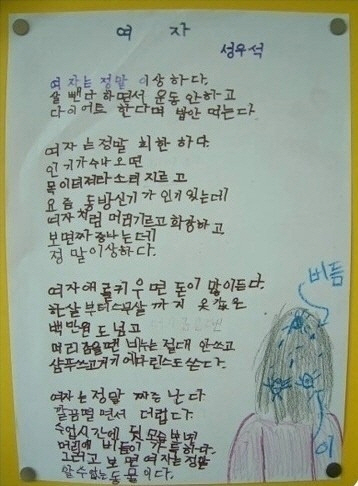 여 자
성우석
여자는정말 이상하다.
살 뺀다 하면서 운동 안하고
다이어트 한다며 밥안 먹는다.
여자는정말 희한 하다.
인기가수나오면
목이터져라소리지르고
요즘 동방신기가 인기있는데
여자처럼 머리기르고 화장하고
보면짜증나는데
정말이상하다.
여자애 를키우면 돈이 많이든다.
한살부터스무살 까지 옷값은
백만원도넘고
머리감을땐 비누는 절대 안쓰고
샴푸쓰고거기에다린스도쓴다.
여자는정말 짜증 난다
깔끔떨면서 더럽다.
수업시간에 뒷 보면
머리에 비듬이 가득하다.
그러고 보면 여자는정말
알수없는동물이다.
비듬
이